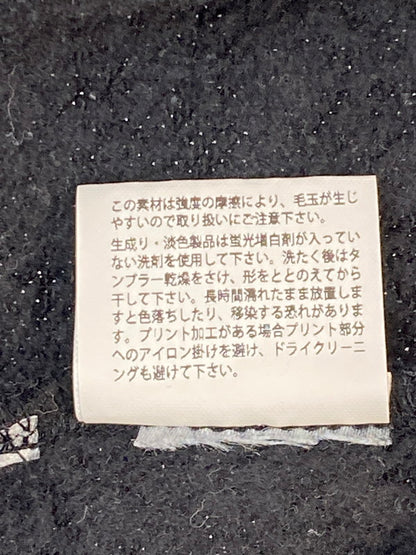 この素材は強度の摩擦により、毛玉が生じ
やすいので取り扱いにご注意下さい。
生成り・淡色製品は蛍光増白剤が入ってい
ない洗剤を使用して下さい。洗たく後はタ
ンブラー乾燥をさけ、形をととのえてから
干して下さい。長時間濡れたまま放置しま
すと色落ちしたり、移染する恐れがありま
す。プリント加工がある場合プリント部分
へのアイロン掛けを避け、ドライクリーニ
ングも避けて下さい。